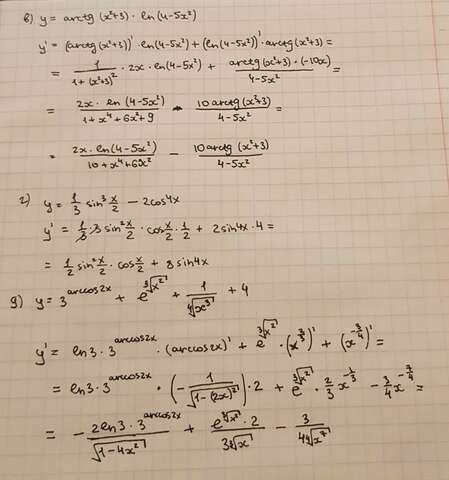 в) y = arctg (x²+3) · ln(4-5x²)
y' = (arctg(x²+3))' · ln(4-5x²) + (ln(4-5x²))' · arctg(x²+3) =
= 1/(1+(x²+3)²) · 2x · ln(4-5x²) + (arctg(x²+3) · (-10x))/(4-5x²) =
= (2x · ln(4-5x²))/(1+x⁴+6x²+9) - (10arctg(x²+3))/(4-5x²) =
= (2x · ln(4-5x²))/(10+x⁴+6x²) - (10arctg(x²+3))/(4-5x²)
г) y = 1/3 sin³ x/2 - 2cos4x
y' = 1/3 · 3 sin² x/2 · cos x/2 · 1/2 + 2sin4x · 4 =
= 1/2 sin² x/2 · cos x/2 + 8sin4x
g) y = 3^(arccos2x) + e^(∛x²) + 1/(∜x³) + 4
y' = ln3 · 3^(arccos2x) · (arccos2x)' + e^(∛x²) · (x^(2/3))' + (x^(-3/4))' =
= ln3 · 3^(arccos2x) · (-1/√(1-(2x)²)) · 2 + e^(∛x²) · 2/3 x^(-1/3) - 3/4 x^(-7/4) =
= - (2ln3 · 3^(arccos2x))/√(1-4x²) + (e^(∛x²) · 2)/(3∛x) - 3/(4∜x⁷)